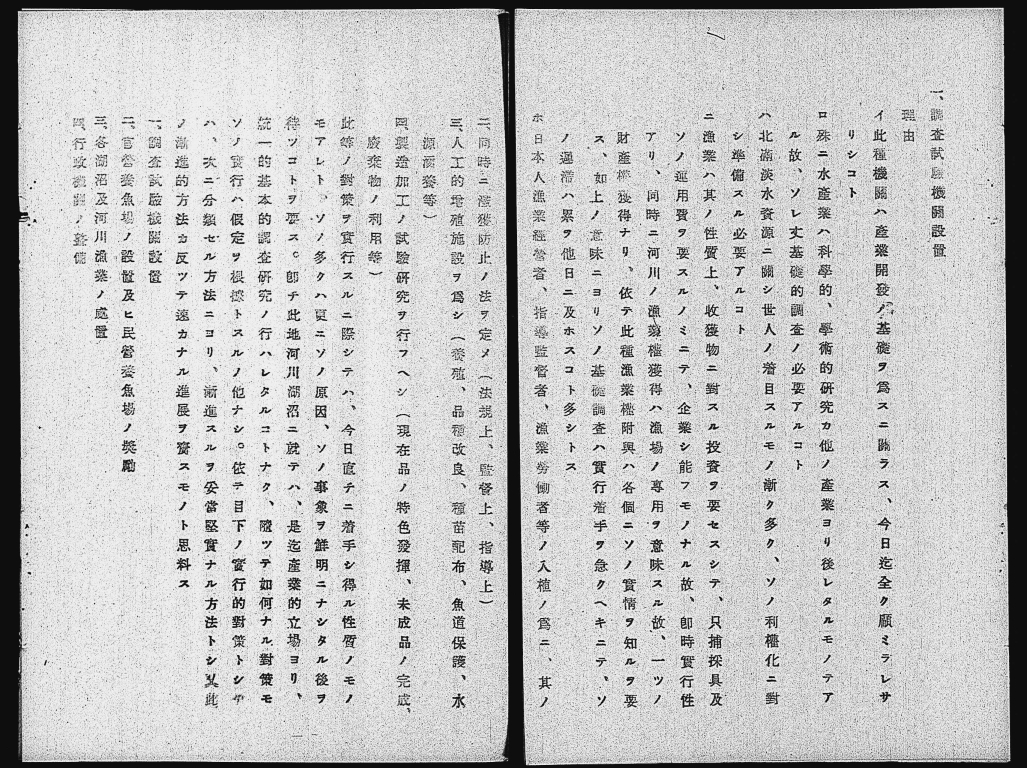 一、調査試驗機關設置
理由
イ此種機關ハ產業開發ノ基礎ヲ爲スニ關ラス、今日迄全ク顧ミラレサ
リシコト
ロ殊ニ水產業ハ科學的、學術的硏究カ他ノ產業ヨリ後レタルモノテア
ル故、ソレ丈基礎的調査ノ必要アルコト
ハ北滿淡水資源ニ關シ世人ノ着目スルモノ漸ク多ク、ソノ利權化ニ對
シ準備スル必要アルコト
ニ漁業ハ其ノ性質上、收獲物ニ對スル投資ヲ要セスシテ、只捕採具及
ソノ運用費ヲ要スルノミニテ、企業シ能フモノナル故、卽時實行性
アリ、同時ニ河川ノ漁獲權獲得ハ漁場ノ專用ヲ意味スル故、一ツノ
財產權獲得ナリ、依テ此種漁業權附與ハ各個ニソノ實情ヲ知ルヲ要
ス、如上ノ意味ニヨリソノ基礎調査ハ實行着手ヲ急クヘキニテ、ソ
ノ遲滯ハ累ヲ他日ニ及ホスコト多シトス
ホ日本人漁業經營者、指導監督者、漁業勞働者等ノ入植ノ爲ニ、其ノ
二、同時ニ濫獲防止ノ法ヲ定メ（法規上、監督上、指導上）
三、人工的增殖施設ヲ爲シ（養殖、品種改良、種苗配布、魚道保護、水
源涵養等）
四、製造加工ノ試驗硏究ヲ行フヘシ（現在品ノ特色發揮、未成品ノ完成、
廢棄物ノ利用等）
此等ノ對策ヲ實行スルニ際シテハ、今日直チニ着手シ得ル性質ノモノ
モアレト、ソノ多クハ更ニソノ原因、ソノ事象ヲ鮮明ニナシタル後ヲ
待ツコトヲ要ス。卽チ此地河川湖沼ニ就テハ、是迄產業的立場ヨリ、
統一的基本的調査硏究ノ行ハレタルコトナク、隨ツテ如何ナル對策モ
ソノ實行ハ假定ヲ根據トスルノ他ナシ。依テ目下ノ實行的對策トシテ
ハ、次ニ分類セル方法ニヨリ、漸進スルヲ妥當堅實ナル方法トシ又此
ノ漸進的方法カ反ツテ速カナル進展ヲ齎スモノト思料ス
一、調査試驗機關設置
二、官營養魚場ノ設置及ヒ民營養魚場ノ獎勵
三、各湖沼及河川漁業ノ處置
四、行政機關ノ整備